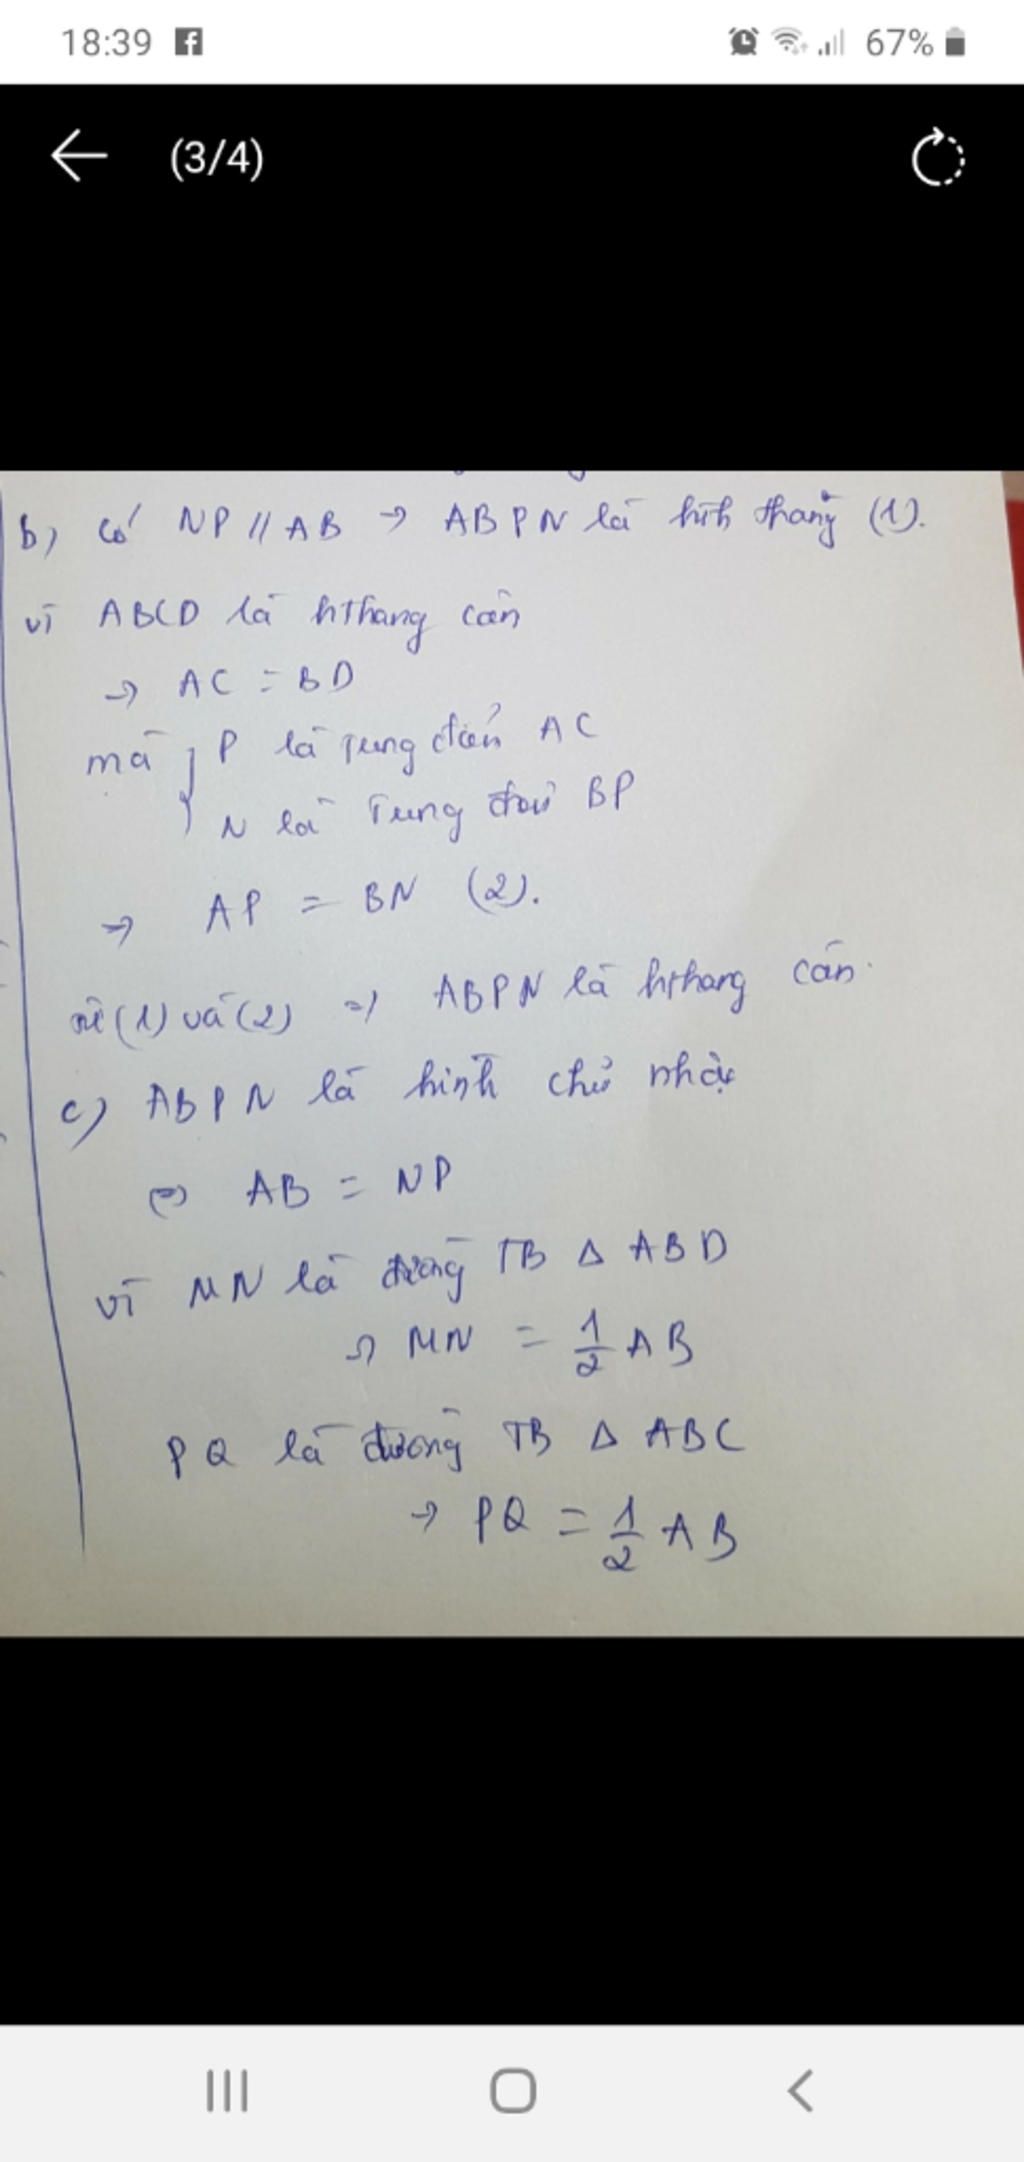 18:39
67%
(3/4)
b) Có NP // AB → ABPN là hình thang (1).
vì ABCD là hthang cân
→ AC = BD
mà { P là Trung điểm AC
N là Trung điểm BP
→ AP = BN (2).
từ (1) và (2) => ABPN là hthang cân.
c) ABPN là hình chữ nhật
<=> AB = NP
vì MN là đường TB Δ ABD
→ MN = 1/2 AB
PQ là đường TB Δ ABC
→ PQ = 1/2 AB